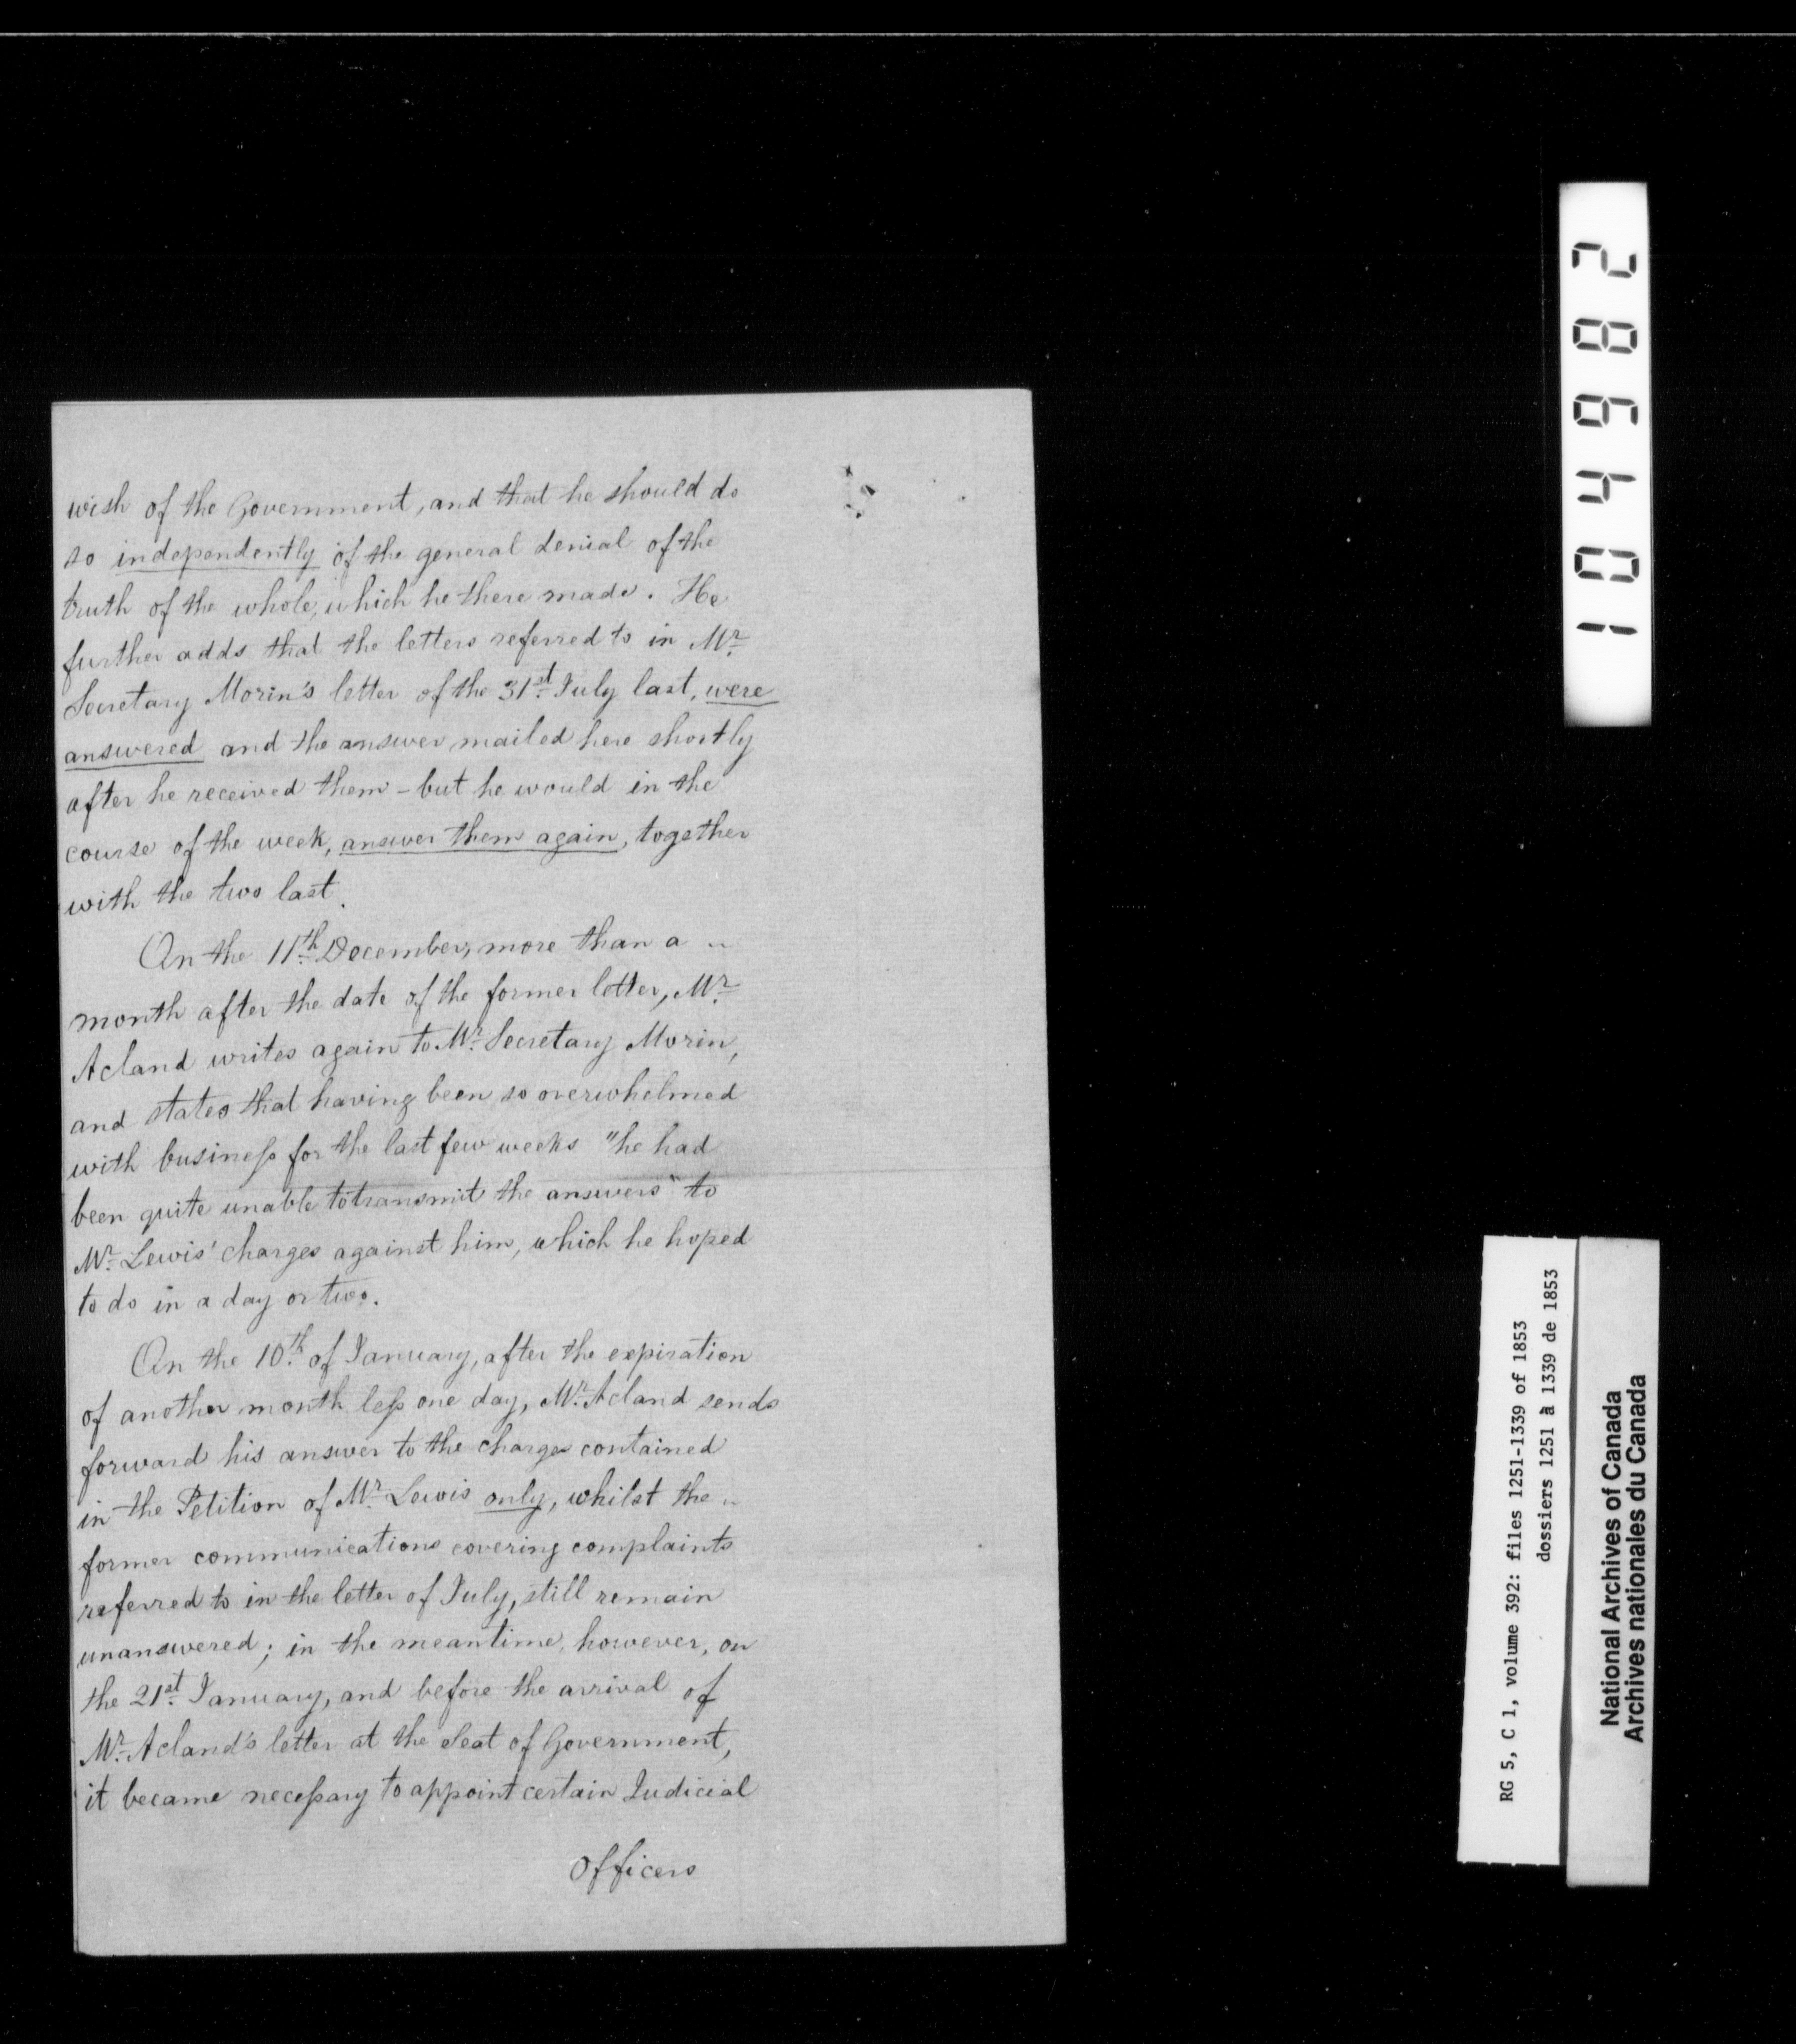 wish of the Government, and that he should do
so independently of the general denial of the
truth of the whole, which he there made. He
further adds that the letters referred to in Mr.
Secretary Morin's letter of the 31st. July last, were
answered and the answer mailed here shortly
after he received them - but he would in the
course of the week, answer them again, together
with the two last.
On the 11th. December, more than a
month after the date of the former letter, Mr.
Acland writes again to Mr. Secretary Morin,
and states that having been so overwhelmed
with business for the last few weeks "he had
been quite unable to transmit the answers" to
Mr. Lewis' charges against him, which he hoped
to do in a day or two.
On the 10th. of January, after the expiration
of another month less one day, Mr. Acland sends
forward his answer to the charges contained
in the Petition of Mr. Lewis only, whilst the
former communications covering complaints
referred to in the letter of July, still remain
unanswered; in the meantime, however, on
the 21st. January, and before the arrival of
Mr. Acland's letter at the Seat of Government,
it became necessary to appoint certain Judicial
Officers
104982
RG 5, C 1, volume 392: files 1251-1339 of 1853
dossiers 1251 à 1339 de 1853
National Archives of Canada
Archives nationales du Canada